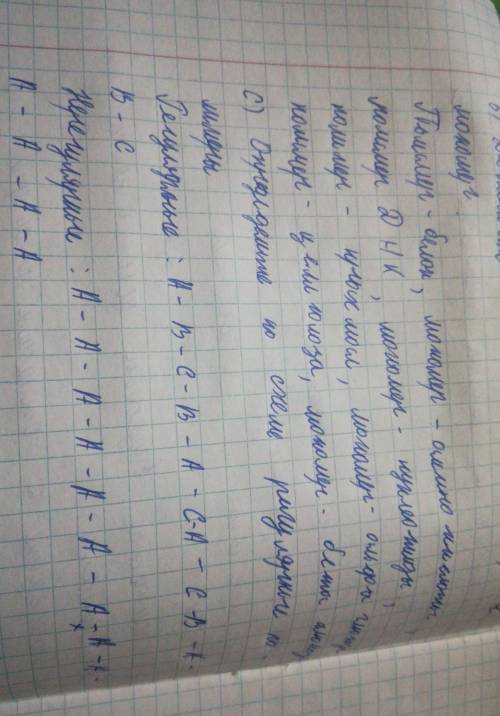 мономер
Полимер - белок, мономер - аминокислоты.
полимер ДНК, мономер - нуклеотиды,
полимер - крахмал, мономер - альфа глюк.
полимер - целлюлоза, мономер - бета глюк.
С) Определите по схеме регулярные по-
лимеры
Регулярные: А - В - С - В - А - С-А - С - В - А -
В - С
Нерегулярные: А - А - А - А - А - А - А - А - А -
А - А - А - А